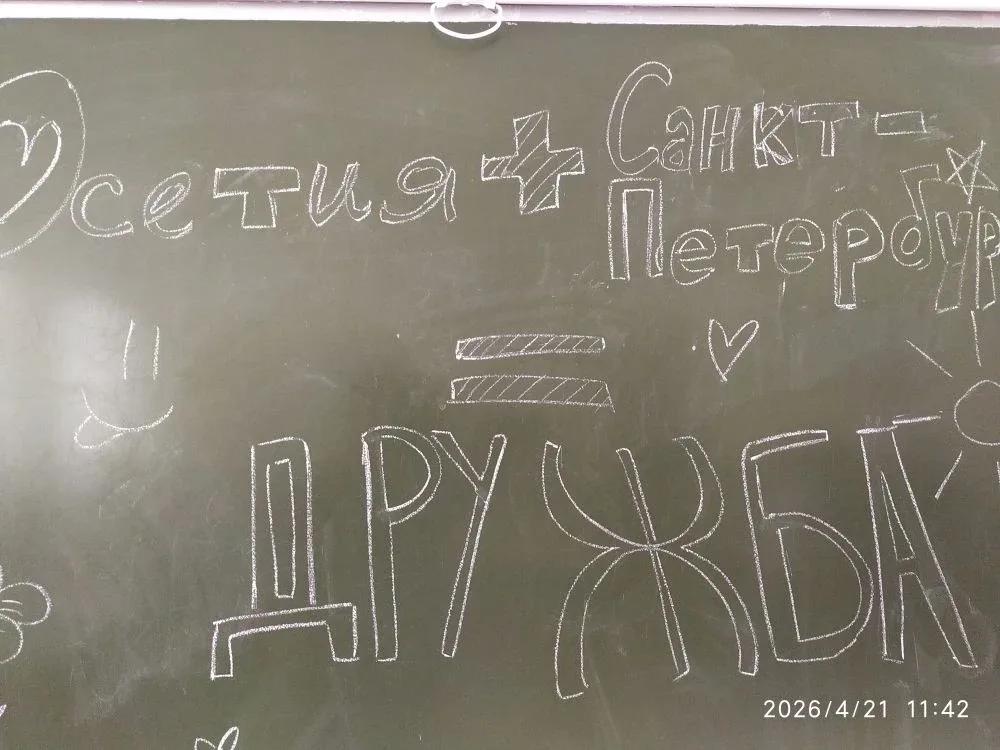 Осетия + Санкт-
Петербур
=
ДРУЖБА
2026/4/21 11:42